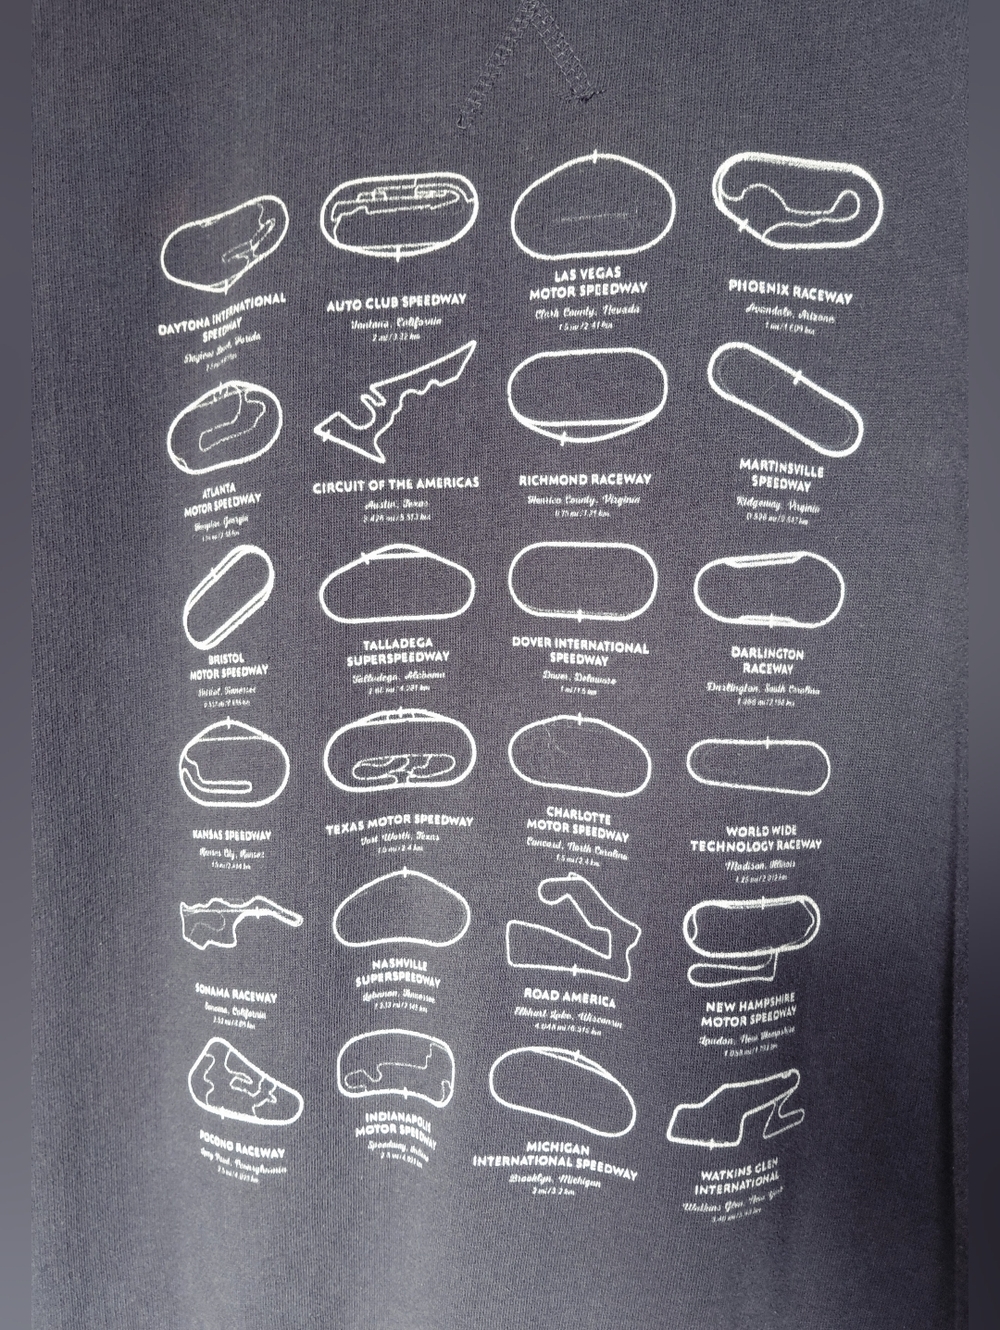 DAYTONA INTERNATIONAL
SPEEDWAY
AUTO CLUB SPEEDWAY
Fontana, California
2 mi/3.22 km
LAS VEGAS
MOTOR SPEEDWAY
Clark County, Nevada
1.5 mi/2.41 km
PHOENIX RACEWAY
Avondale, Arizona
1 mi/1.609 km
ATLANTA
MOTOR SPEEDWAY
Hampton, Georgia
CIRCUIT OF THE AMERICAS
Austin, Texas
3.426 mi/5.513 km
RICHMOND RACEWAY
Henrico County, Virginia
0.75 mi/1.21 km
MARTINSVILLE
SPEEDWAY
Ridgeway, Virginia
0.526 mi/0.847 km
BRISTOL
MOTOR SPEEDWAY
Bristol, Tennessee
TALLADEGA
SUPERSPEEDWAY
Talladega, Alabama
DOVER INTERNATIONAL
SPEEDWAY
Dover, Delaware
1 mi/1.6 km
DARLINGTON
RACEWAY
Darlington, South Carolina
1.366 mi/2.198 km
KANSAS SPEEDWAY
Kansas City, Kansas
TEXAS MOTOR SPEEDWAY
Fort Worth, Texas
1.5 mi/2.4 km
CHARLOTTE
MOTOR SPEEDWAY
Concord, North Carolina
1.5 mi/2.4 km
WORLD WIDE
TECHNOLOGY RACEWAY
Madison, Illinois
1.25 mi/2.012 km
SONAMA RACEWAY
Sonoma, California
NASHVILLE
SUPERSPEEDWAY
Lebanon, Tennessee
ROAD AMERICA
Elkhart Lake, Wisconsin
4.048 mi/6.515 km
NEW HAMPSHIRE
MOTOR SPEEDWAY
Loudon, New Hampshire
POCONO RACEWAY
Long Pond, Pennsylvania
INDIANAPOLIS
MOTOR SPEEDWAY
Speedway, Indiana
MICHIGAN
INTERNATIONAL SPEEDWAY
Brooklyn, Michigan
2 mi/3.2 km
WATKINS GLEN
INTERNATIONAL
Watkins Glen, New York